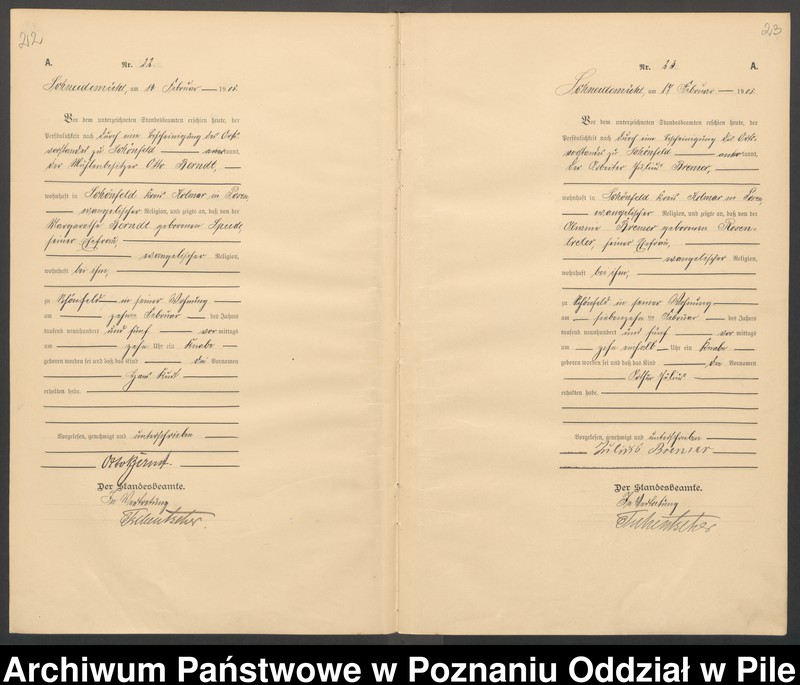 212
A.
Nr. 22
Schneidemühl, am 14 Februar 1905.
Vor dem unterzeichneten Standesbeamten erschien heute, der
Persönlichkeit nach durch eine Bescheinigung des Orts-
vorstandes zu Schönfeld anerkannt,
der Mühlenbesitzer Otto Berndt,
wohnhaft in Schönfeld Kreis Kolmar in Posen,
evangelischer Religion, und zeigte an, daß von der
Margarethe Berndt geborenen
seiner Ehefrau,
evangelischer Religion,
wohnhaft bei ihm,
zu Schönfeld in seiner Wohnung
am zehnten Februar des Jahres
tausend neunhundert und fünf vormittags
um zehn Uhr ein Knabe
geboren worden sei und daß das Kind die Vornamen
Hans Kurt
erhalten habe.
Vorgelesen, genehmigt und unterschrieben
Otto Berndt.
Der Standesbeamte.
In Vertretung
213
Nr. 23.
A.
Schneidemühl, am 17 Februar 1905.
Vor dem unterzeichneten Standesbeamten erschien heute, der
Persönlichkeit nach durch eine Bescheinigung des Orts-
vorstandes zu Schönfeld anerkannt,
der Arbeiter Julius Bremer,
wohnhaft in Schönfeld Kreis Kolmar in Posen,
evangelischer Religion, und zeigte an, daß von der
Bremer geborenen Rosen-
seiner Ehefrau,
evangelischer Religion,
wohnhaft bei ihm,
zu Schönfeld in seiner Wohnung
am siebenzehnten Februar des Jahres
tausend neunhundert und fünf vormittags
um zehn einhalb Uhr ein Knabe
geboren worden sei und daß das Kind die Vornamen
Julius
erhalten habe.
Vorgelesen, genehmigt und unterschrieben
Julius Bremer
Der Standesbeamte.
In Vertretung
Archiwum Państwowe w Poznaniu Oddział w Pile